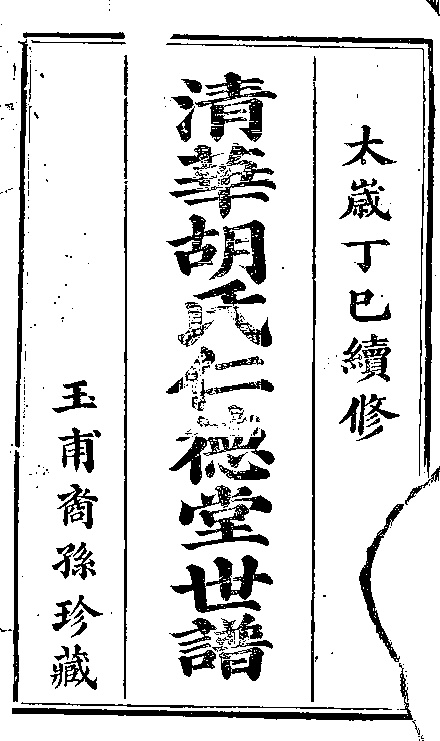 太歲丁巳續修
清華胡氏仁德堂世譜
玉甫裔孫珍藏